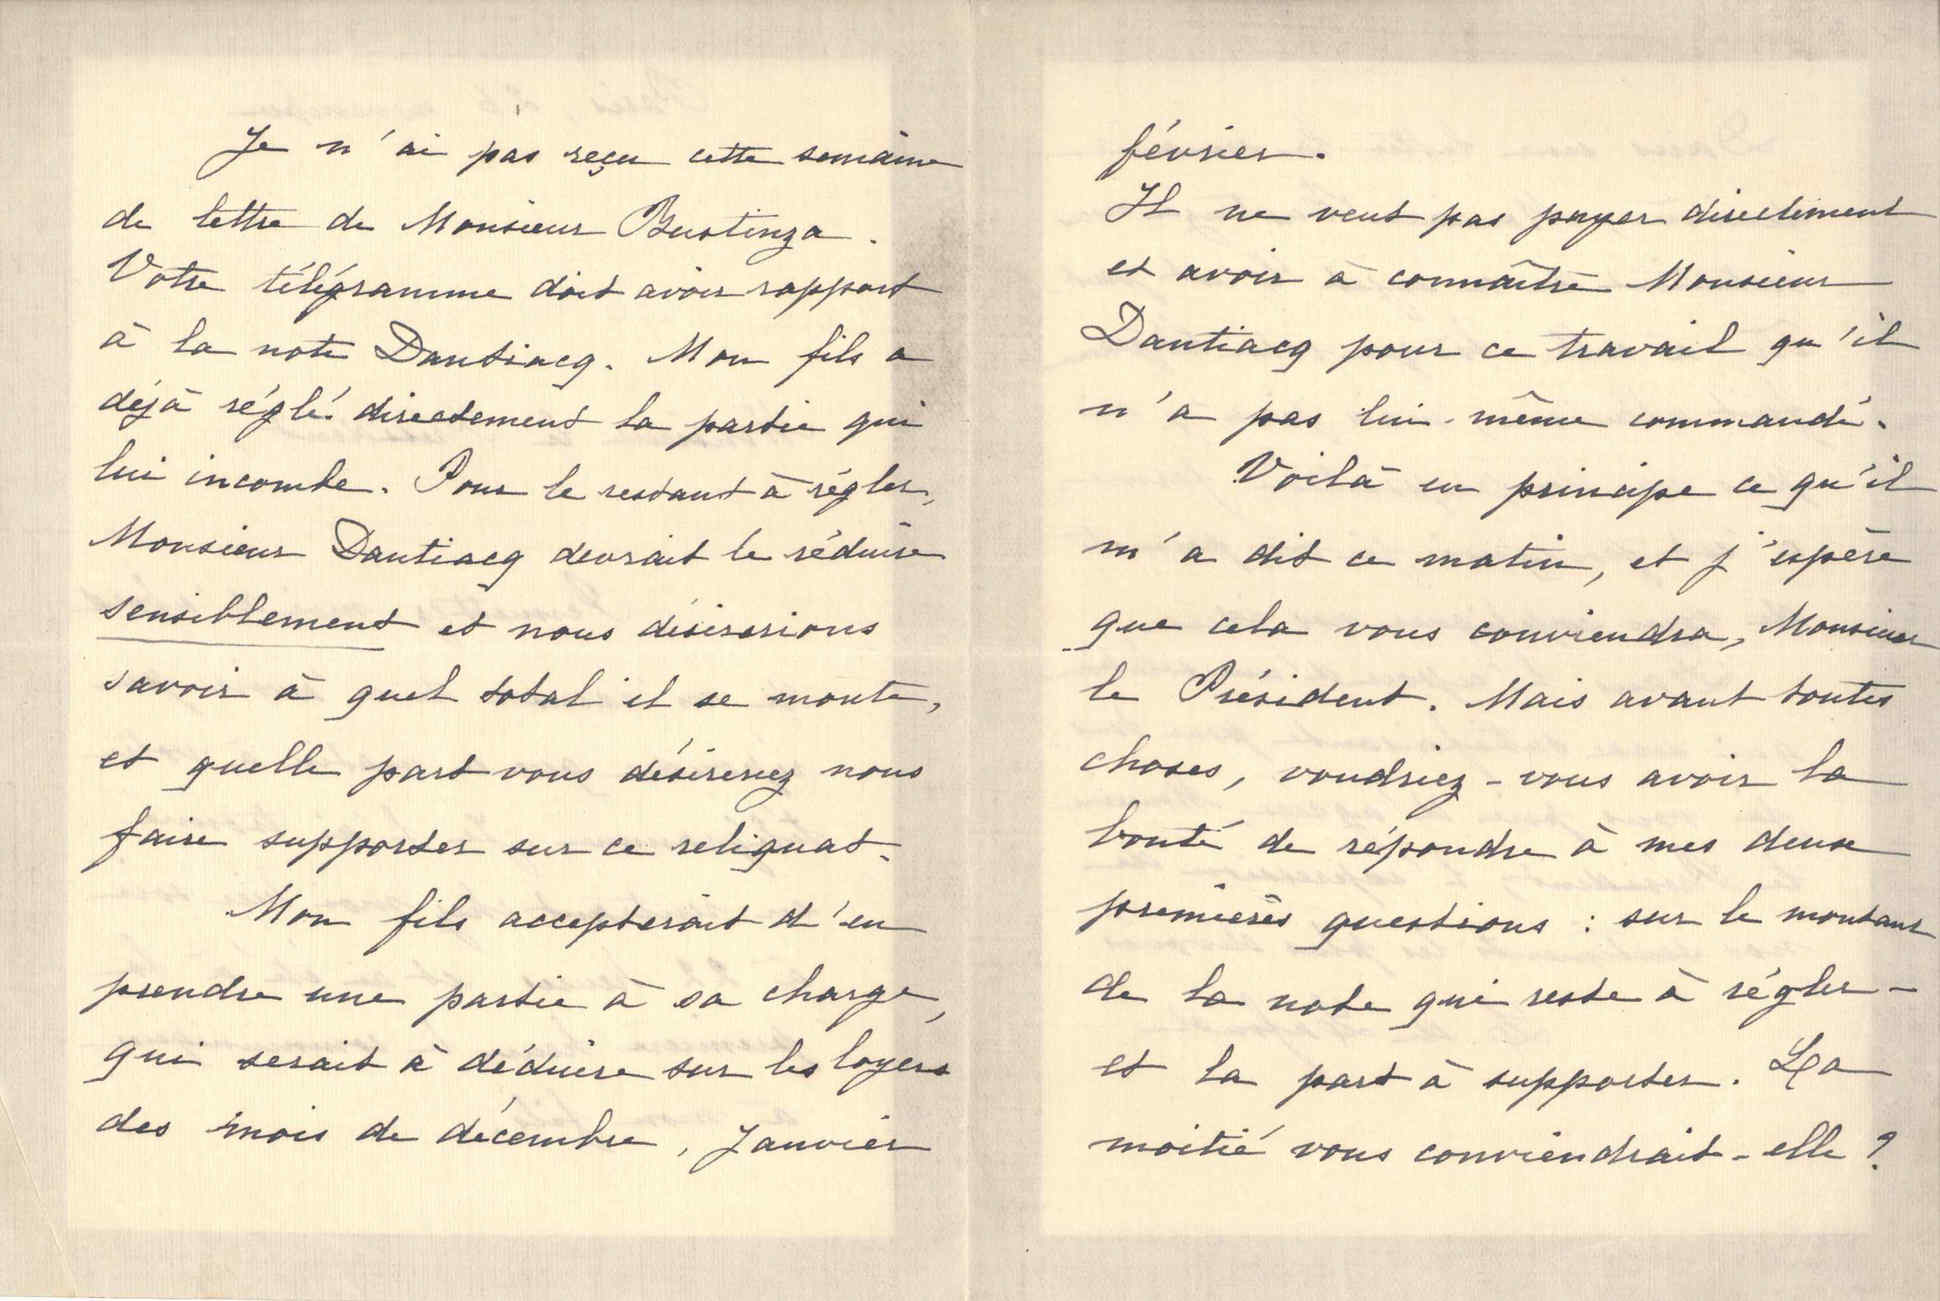 Je n'ai pas reçu cette semaine
de lettre de Monsieur Bustinza.
Votre télégramme doit avoir rapport
à la note Dantiacq. Mon fils a
déjà réglé directement la partie qui
lui incombe. Pour le restant à régler,
Monsieur Dantiacq devrait le réduire
sensiblement et nous désirerions
savoir à quel total il se monte,
et quelle part vous désireriez nous
faire supporter sur ce reliquat.
Mon fils accepterait d'en
prendre une partie à sa charge,
qui serait à déduire sur les loyers
des mois de décembre, Janvier
février.
Il ne veut pas payer directement
et avoir à connaître Monsieur
Dantiacq pour ce travail qu'il
n'a pas lui-même commandé.
Voilà en principe ce qu'il
m'a dit ce matin, et j'espère
que cela vous conviendra, Monsieur
le Président. Mais avant toutes
choses, voudriez-vous avoir la
bonté de répondre à mes deux
premières questions : sur le montant
de la note qui reste à régler -
et la part à supporter. La
moitié vous conviendrait-elle ?